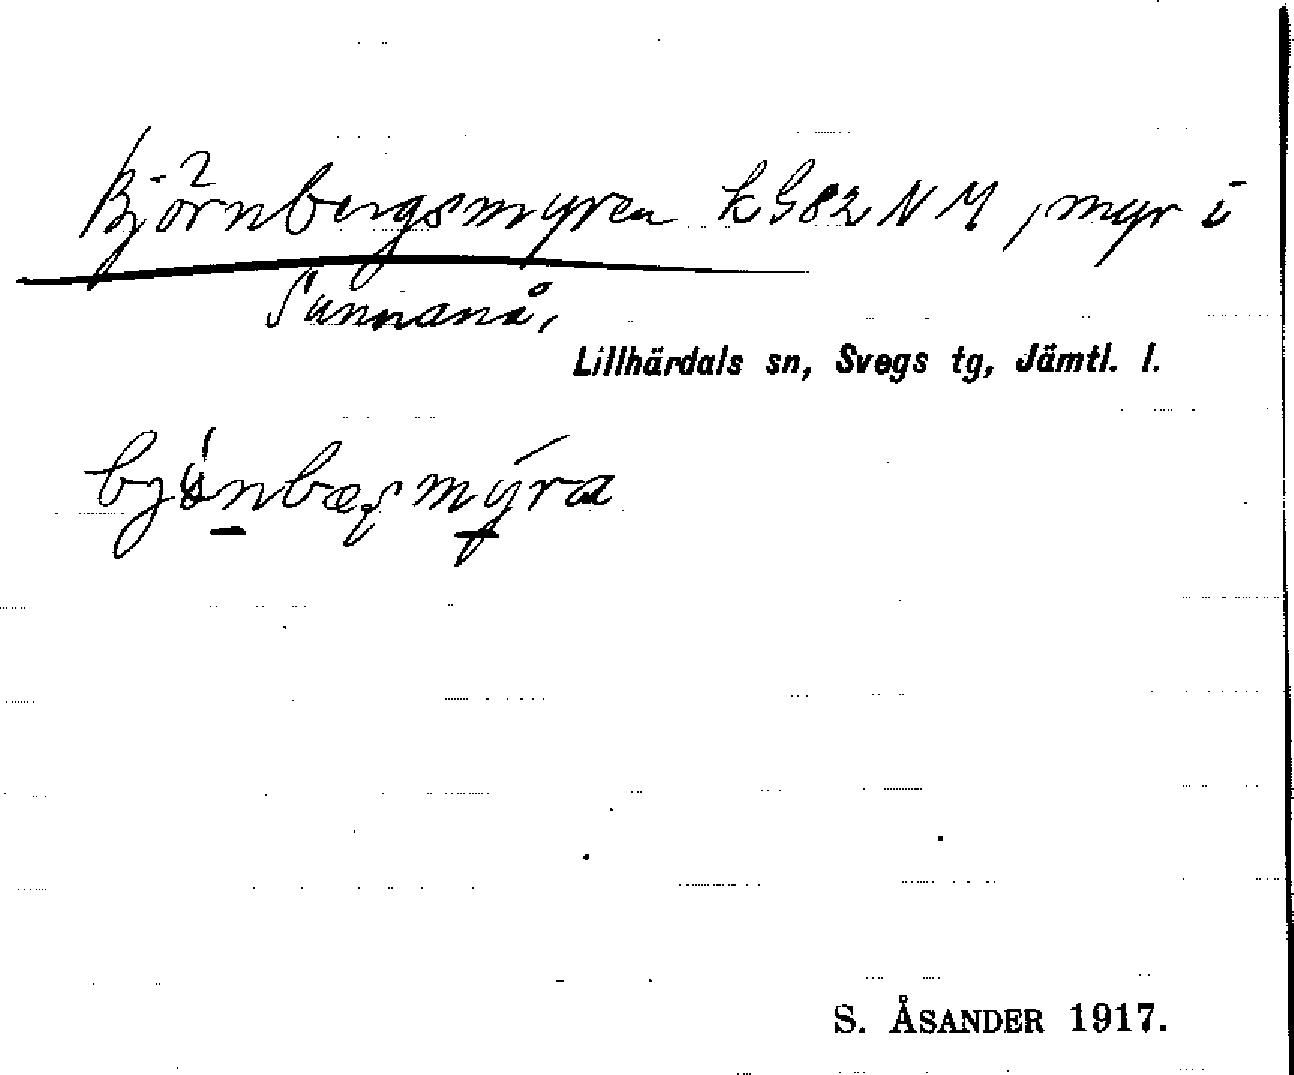 Björnbergsmyren k G82 NM, myr i
Sunnanå,
Lillhärdals sn, Svegs tg, Jämtl. l.
S. ÅSANDER 1917.